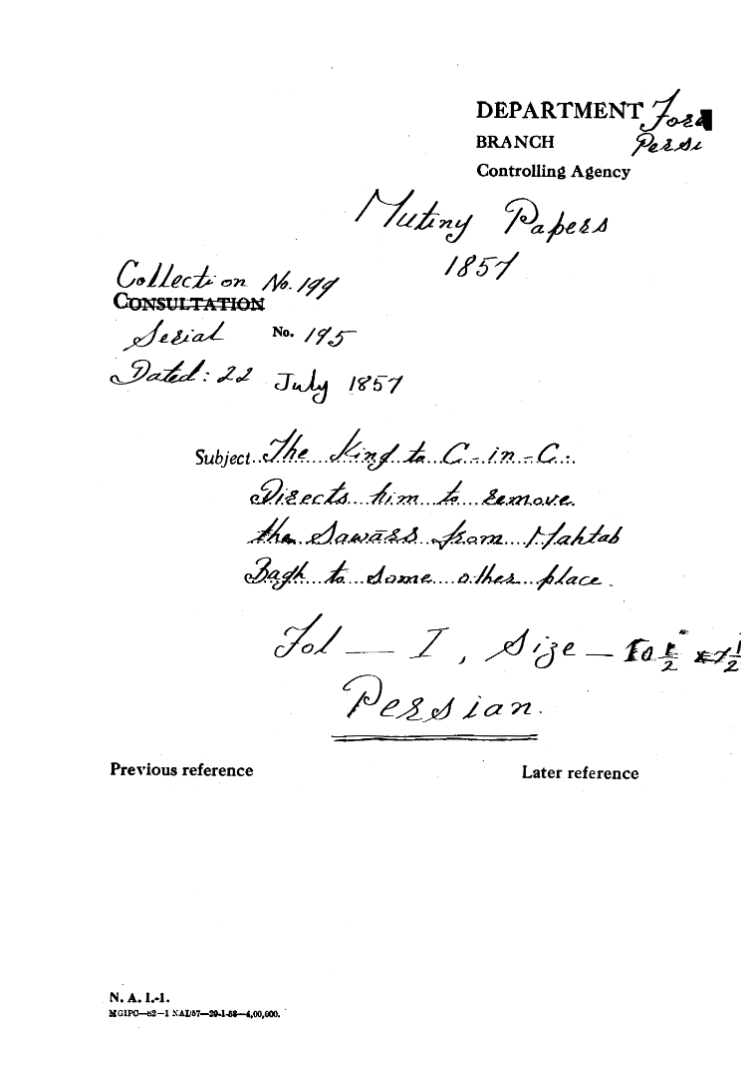 DEPARTMENT
BRANCH Persi
Controlling Agency
Mutiny Papers
1857
Collection No. 199
CONSULTATION
Serial No. 195
Dated: 22 July 1857
Subject..The King to C-in-C:.
Directs him to remove
the Sawārs from Mahtab
Bagh to some other place.
Fol — I, Size —
Persian.
Previous reference Later reference
N. A. I.-1.
MGIPC—S2—1 NAI/57—29-1-58—4,00,000.